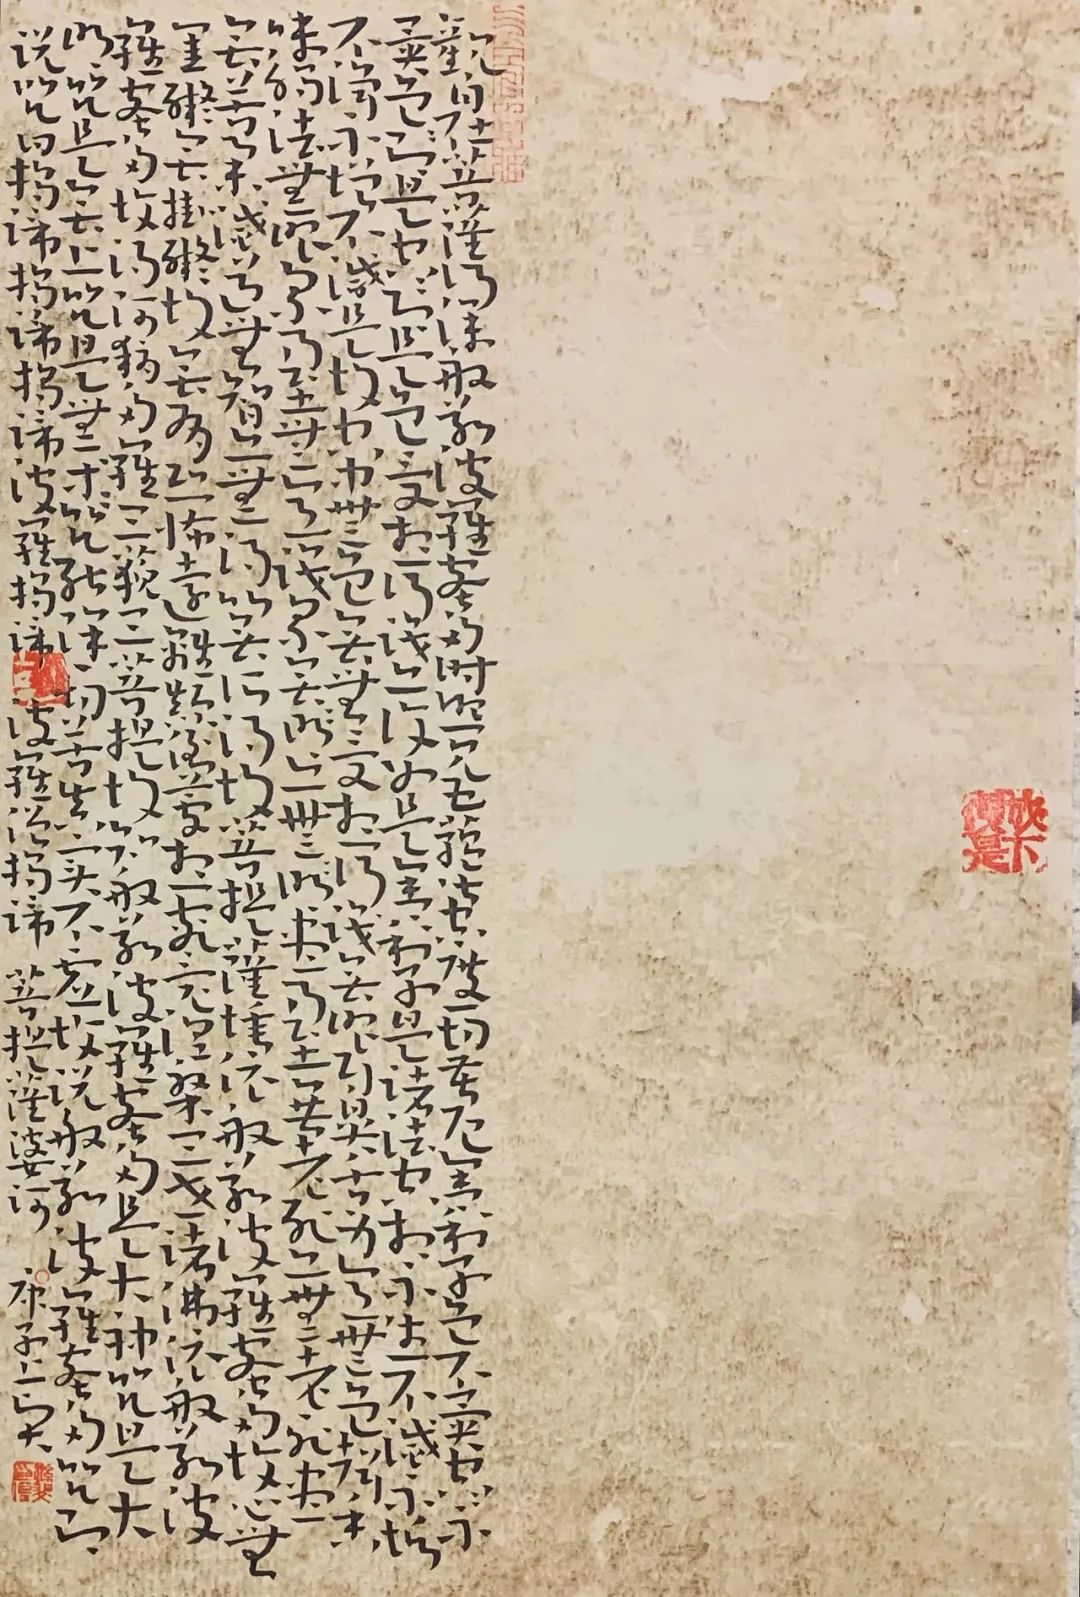 觀自在菩薩行深般若波羅蜜多時照見五蘊皆空度一切苦厄舍利子色不異空空不
異色色即是空空即是色受想行識亦復如是舍利子是諸法空相不生不滅不垢
不淨不增不減是故空中無色無受想行識無眼耳鼻舌身意無色聲香
味觸法無眼界乃至無意識界無無明亦無無明盡乃至無老死亦無老死盡
無苦集滅道無智亦無得以無所得故菩提薩埵依般若波羅蜜多故心無
罣礙無罣礙故無有恐怖遠離顛倒夢想究竟涅槃三世諸佛依般若波
羅蜜多故得阿耨多羅三藐三菩提故知般若波羅蜜多是大神咒是大
明咒是無上咒是無等等咒能除一切苦真實不虛故說般若波羅蜜多咒即
说咒曰揭諦揭諦揭諦波羅揭諦 波羅僧揭諦 菩提薩婆訶 庚子